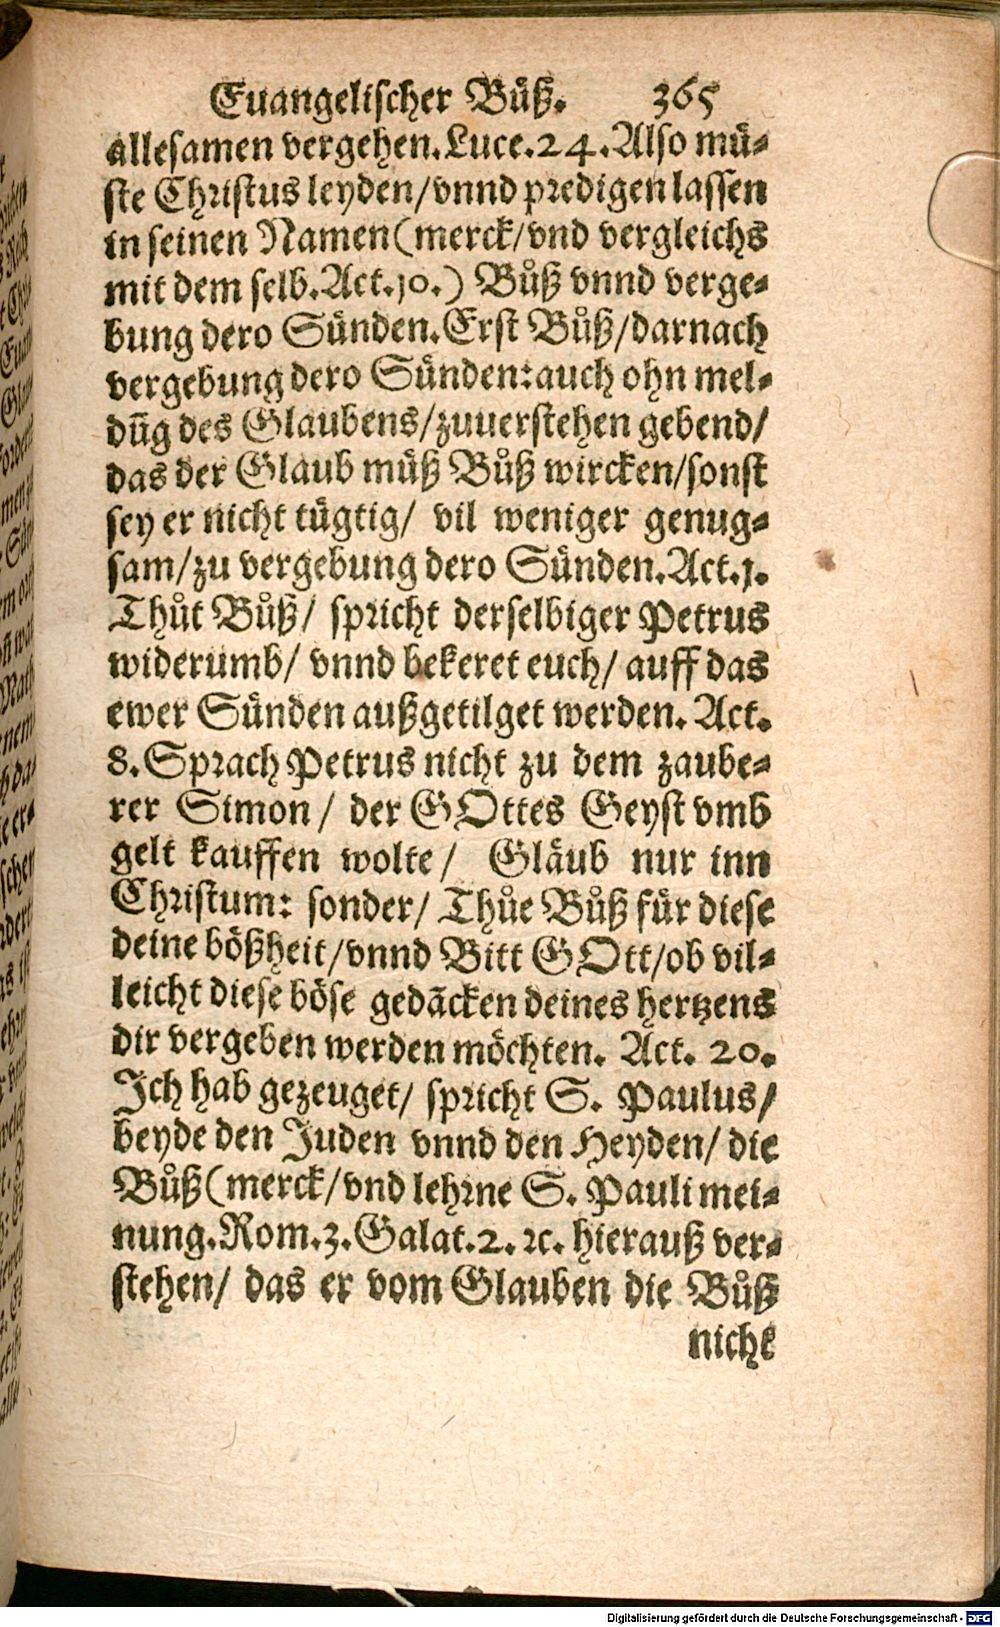 Euangelischer Bůß. 365
allesamen vergehen. Luce. 24. Also mü-
ste Christus leyden/ vnnd predigen lassen
in seinen Namen (merck/ vnd vergleichs
mit dem selb. Act. 10.) Bůß vnnd verge-
bung dero Sünden. Erst Bůß/ darnach
vergebung dero Sünden: auch ohn mel-
dūg des Glaubens/ zuuerstehen gebend/
das der Glaub müß Bůß wircken/ sonst
sey er nicht tügtig/ vil weniger genug-
sam/ zu vergebung dero Sünden. Act. 1.
Thůt Bůß/ spricht derselbiger Petrus
widerumb/ vnnd bekeret euch/ auff das
ewer Sünden außgetilget werden. Act.
8. Sprach Petrus nicht zu dem zaube-
rer Simon/ der GOttes Geyst vmb
gelt kauffen wolte/ Gläub nur inn
Christum: sonder/ Thůe Bůß für diese
deine bößheit/ vnnd Bitt GOtt/ ob vil-
leicht diese böse gedācken deines hertzens
dir vergeben werden möchten. Act. 20.
Ich hab gezeuget/ spricht S. Paulus/
beyde den Juden vnnd den Heyden/ die
Bůß (merck/ vnd lehrne S. Pauli mei-
nung. Rom. 3. Galat. 2. ꝛc. hierauß ver-
stehen/ das er vom Glauben die Bůß
nicht
Digitalisierung gefördert durch die Deutsche Forschungsgemeinschaft - DFG